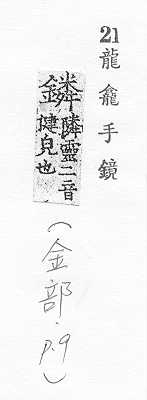 21龍龕手鏡
鏻隣靈二音
健皃也
(金部.p.9)